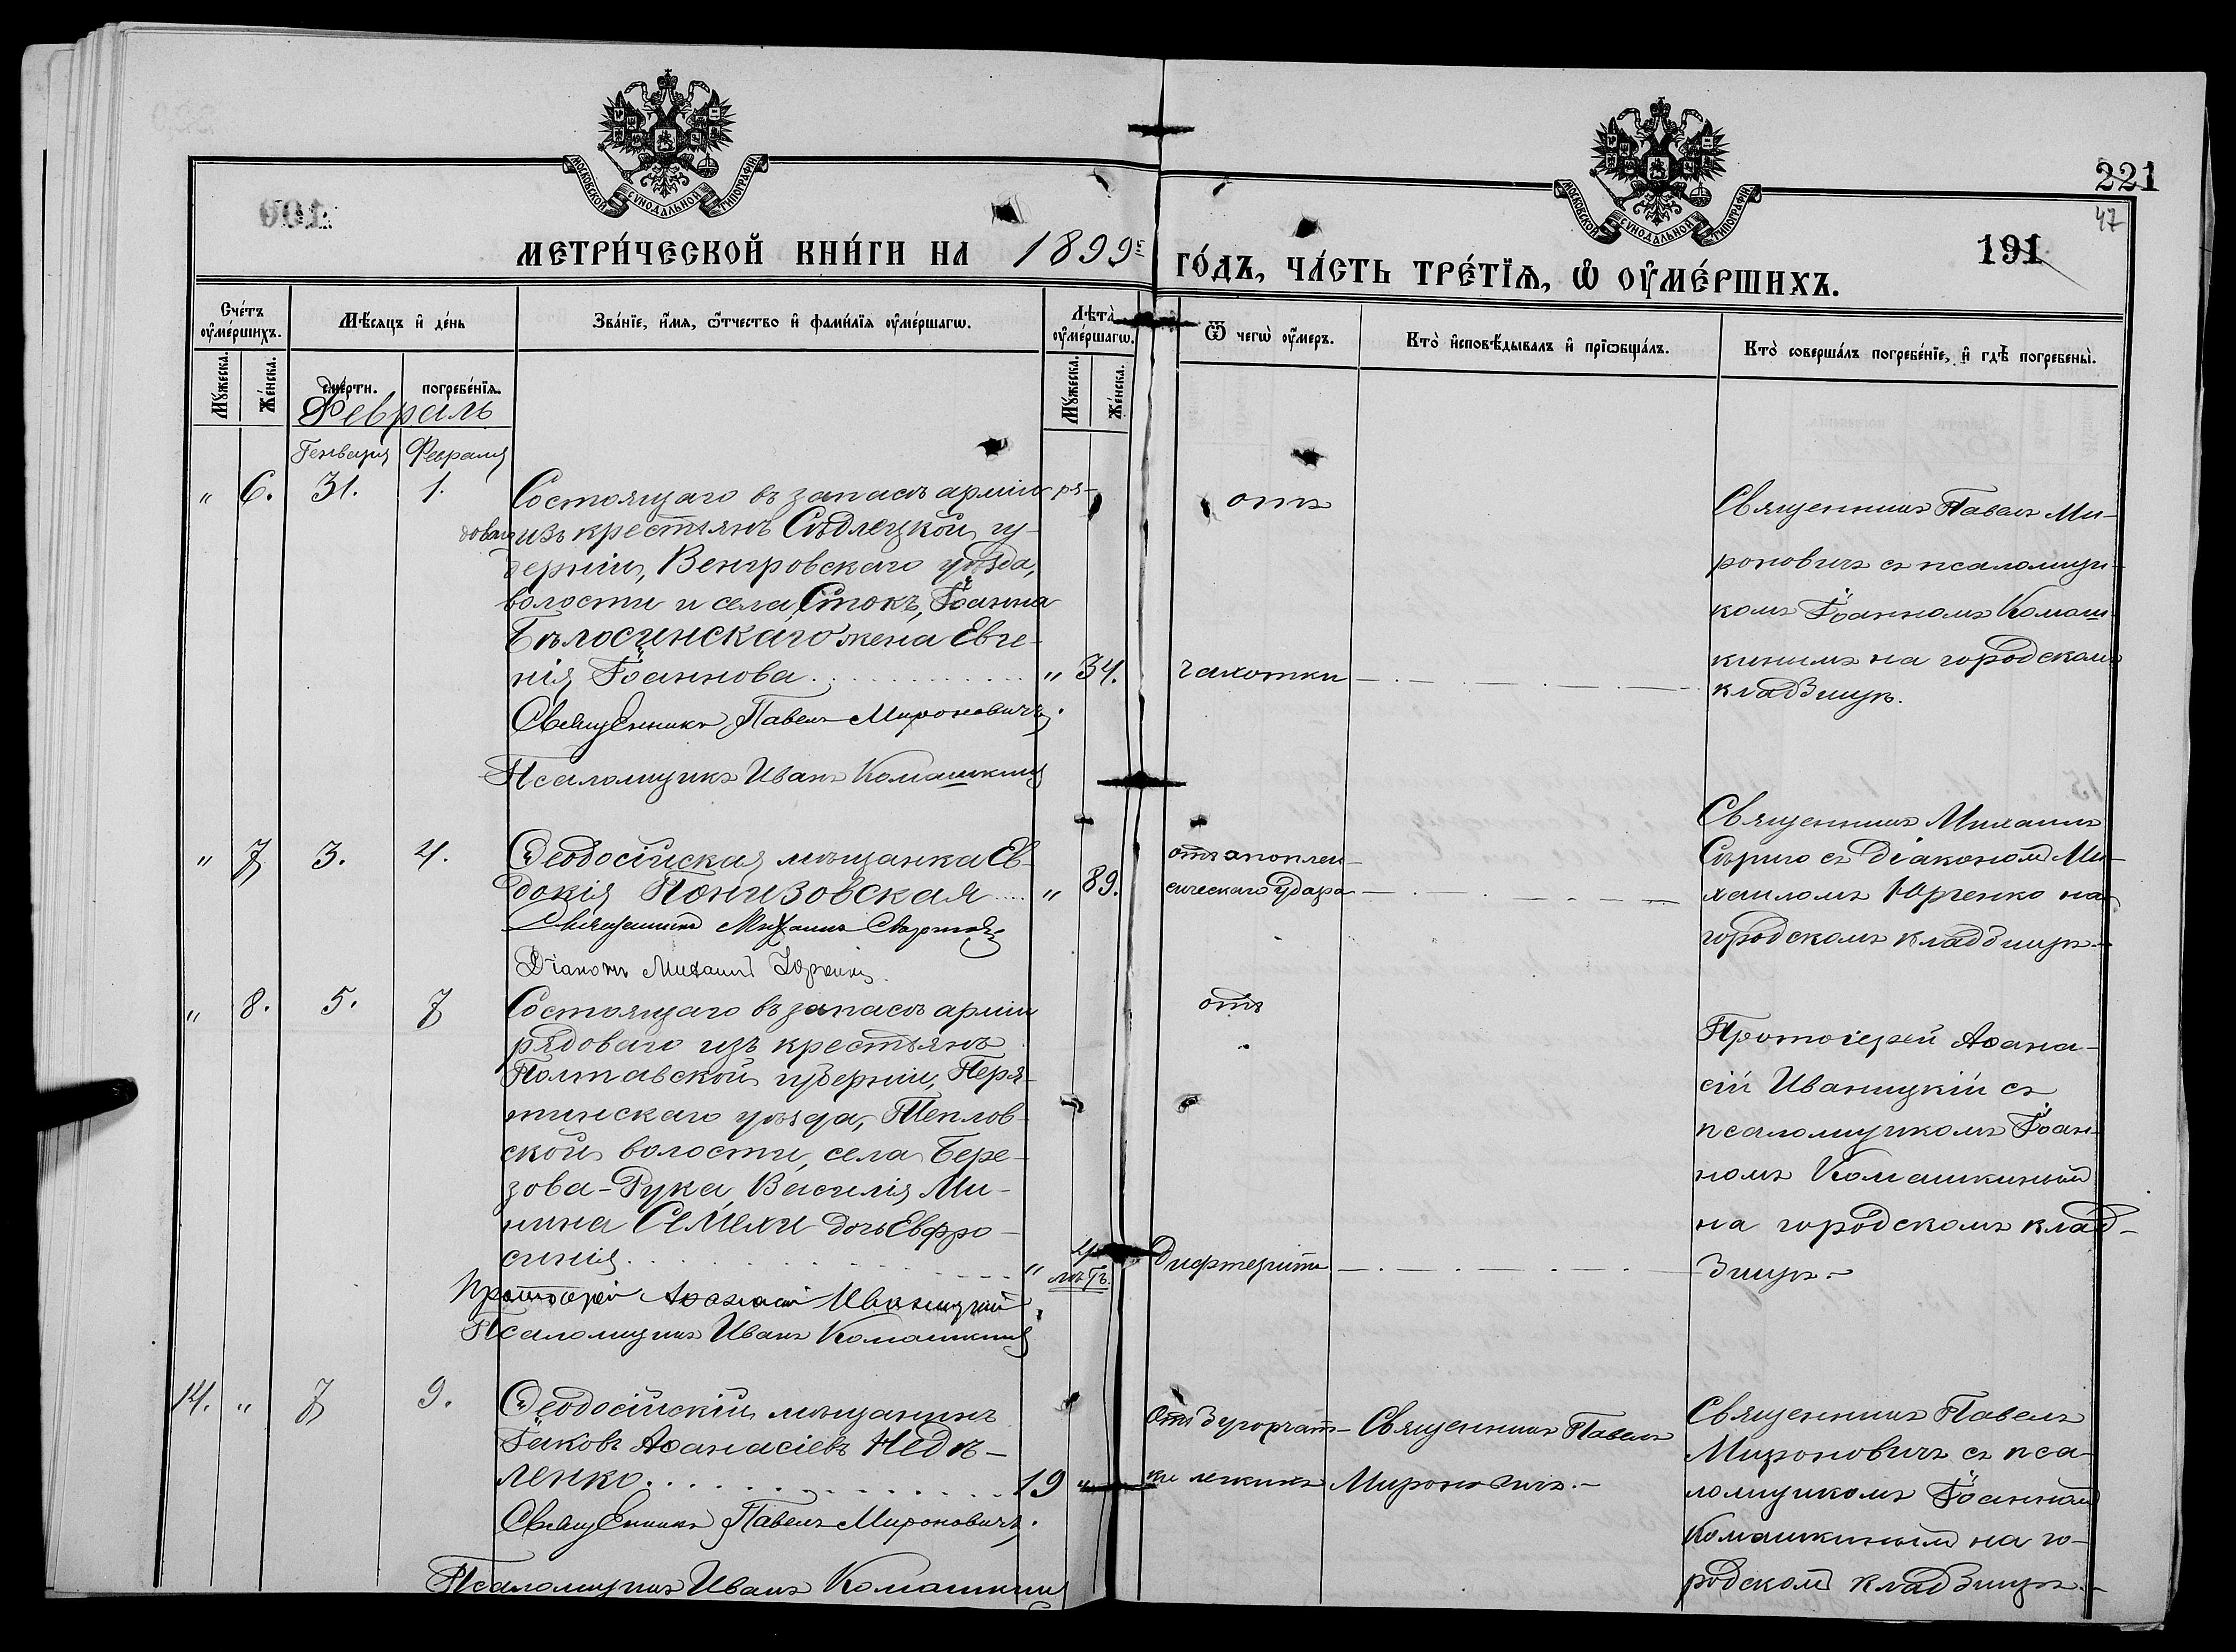 МОСКОВСКОЙ СѴНОДАЛЬНОЙ ТИПОГРАФІИ
МОСКОВСКОЙ СѴНОДАЛЬНОЙ ТИПОГРАФІИ
221
47
191
МЕТРИ́ЧЕСКОЙ КНИ́ГИ НА 1899й ГО́ДЪ, ЧА́СТЬ ТРЕ́ТІѦ, Ѡ҆ ОУ҆МЕ́РШИХЪ.
Сче́тъ оу҆ме́ршихъ.
Мѣ́сяцъ и҆ де́нь
Зва́нїе, и҆́мя, ѻ҆́тчество и҆ фами́лїя оу҆ме́ршагѡ.
Лѣ́та оу҆ме́ршагѡ.
Ѿ чегѡ̀ оу҆́меръ.
Кто̀ и҆сповѣ́дывалъ и҆ прїѡбща́лъ.
Кто̀ соверша́лъ погребе́нїе, и҆ гдѣ̀ погребены̀.
Му́жеска.
Же́нска.
сме́рти.
погребе́нїя.
Му́жеска.
Же́нска.
Февраль
Генваря Февраля
" 6. 31. 1.
Состоящаго въ запасѣ арміи ря-
доваго изъ крестьянъ Сѣдлецкой гу-
берніи, Венгровскаго уѣзда,
волости и села Стокъ, Іоанна
Бѣлосинскаго жена Евге-
нія Іоаннова " 34.
Священникъ Павелъ Мироновичъ.
Псаломщикъ Иванъ Комашкинъ
отъ
чахотки
Священникъ Павелъ Ми-
роновичъ съ псаломщи-
комъ Іоанномъ Комаш-
кинымъ на городскомъ
кладбищѣ.
" 7 3. 4.
Ѳеодосійская мѣщанка Ев-
докія Понизовская " 89.
Священникъ Михаилъ
Діаконъ Михаилъ Юрченко
отъ апоплек-
сическаго удара
Священникъ Михаилъ
съ діакономъ Ми-
хаиломъ Юрченко на
городскомъ кладбищѣ.
" 8. 5. 7
Состоящаго въ запасѣ арміи
рядоваго изъ крестьянъ
Полтавской губерніи, Пиря-
тинскаго уѣзда, Теплов-
ской волости, села Бере-
зова-Рука, Василія Ми-
нина Семехи дочь Евфро-
синія " 4 лѣтъ.
Протоіерей Аѳанасій Иваницкій.
Псаломщикъ Иванъ Комашкинъ
отъ
дифтерита
Протоіерей Аѳана-
сій Иваницкій съ
псаломщикомъ Іоан-
номъ Комашкинымъ
на городскомъ клад-
бищѣ.
14. " 7 9.
Ѳеодосійскій мѣщанинъ
Іаковъ Аѳанасіевъ Недѣ-
ленко 19 "
Священникъ Павелъ Мироновичъ.
Псаломщикъ Иванъ Комашкинъ
Отъ бугорчат-
ки легкихъ
Священникъ Павелъ
Мироновичъ.
Священникъ Павелъ
Мироновичъ съ пса-
ломщикомъ Іоанномъ
Комашкинымъ на го-
родскомъ кладбищѣ.